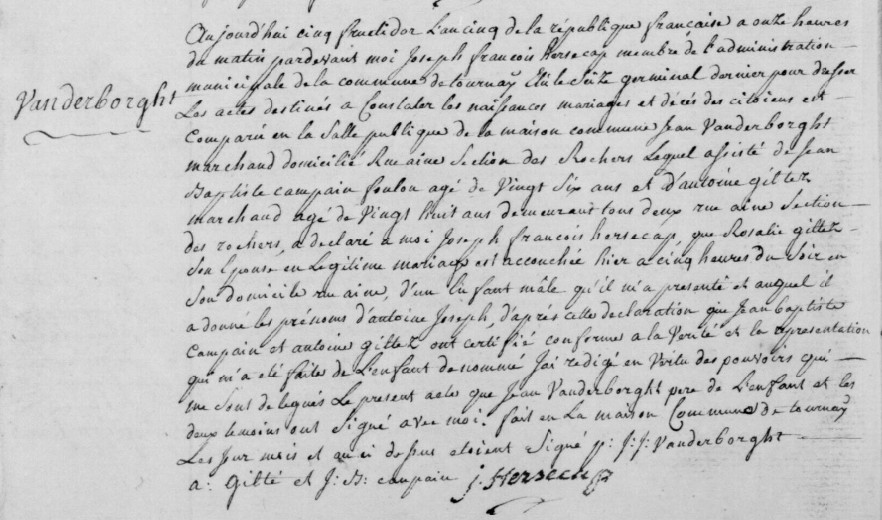 Vanderborght
Aujourd'hui cinq fructidor L'an cinq de la république française a onze heures
du matin pardevant moi Joseph françois hersecap membre de l'administration
municipale de la commune de tournay Elu le Seize germinal dernier pour dresser
Les actes destinés a Constater les naissances mariages et décés des citoiens est
Comparu en la Salle publique de la maison commune Jean Vanderborght
marchand domicilié Rue aine Section des Rochers Lequel assisté de Jean
Baptiste campain foulon agé de Vingt Six ans et D'antoine gittez
marchand agé de Vingt huit ans demeurant tous deux rue aine Section
des rochers, a declaré a moi Joseph françois hersecap, que Rosalie gittez
Son Epouse en Legitime mariage est accouchée hier a cinq heures du Soir en
Son domicile rue aine, d'un Enfant mâle qu'il m'a presenté et auquel il
a donné les prénoms d'antoine Joseph, d'après cette declaration que Jean baptiste
Campain et antoine gittez ont certifié conforme a la Verité et la representation
qui m'a été faite de L'enfant denommé J'ai redigé en Vertu des pouvoirs qui
me Sont delegués Le present acte que Jean Vanderborght pere de L'enfant et les
deux temoins ont Signé avec moi. fait en La maison Commune de tournay
Les Jour mois et an ci dessus etoient Signé p: J: J: Vanderborght
a: Gitté et J: B: campain J. Hersecap